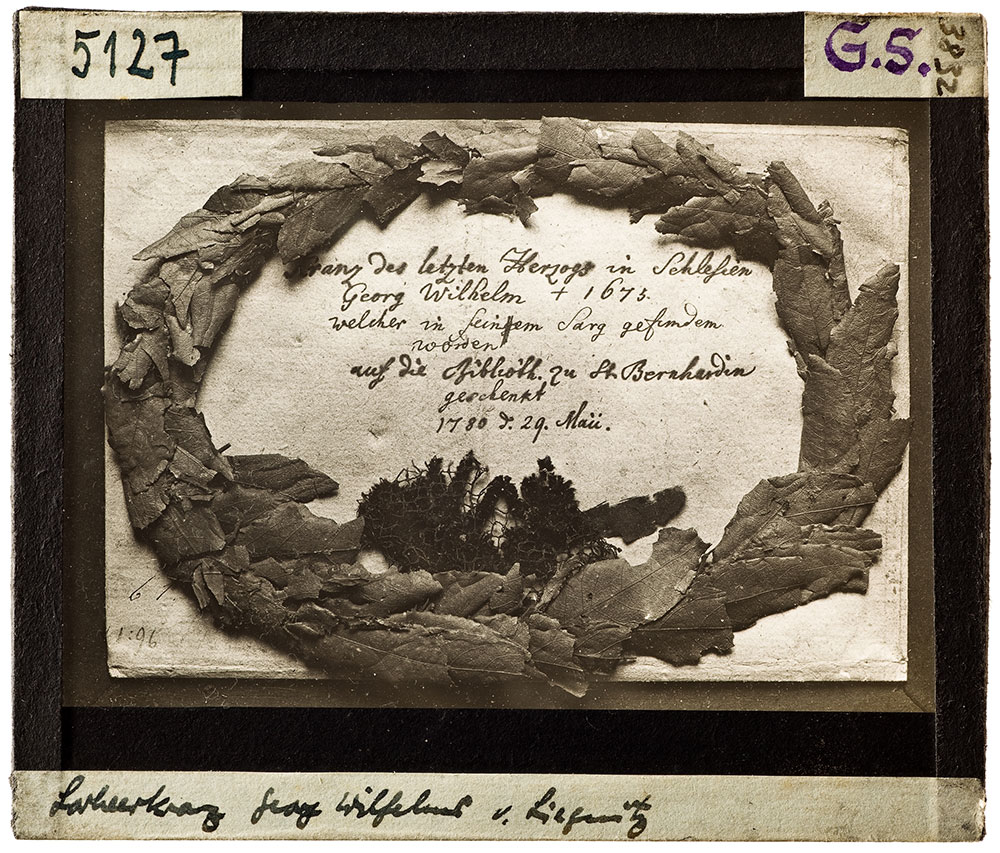 5127
G.S.
3832
Kranz des letzten Herzogs in Schlesien
Georg Wilhelm + 1675.
welcher in seinem Sarg gefundem
worden
auf die Biblioth. zu St. Bernhardin
geschenkt
1780 d. 29. Maii.
Lorbeerkranz Georg Wilhelms v. Liegnitz